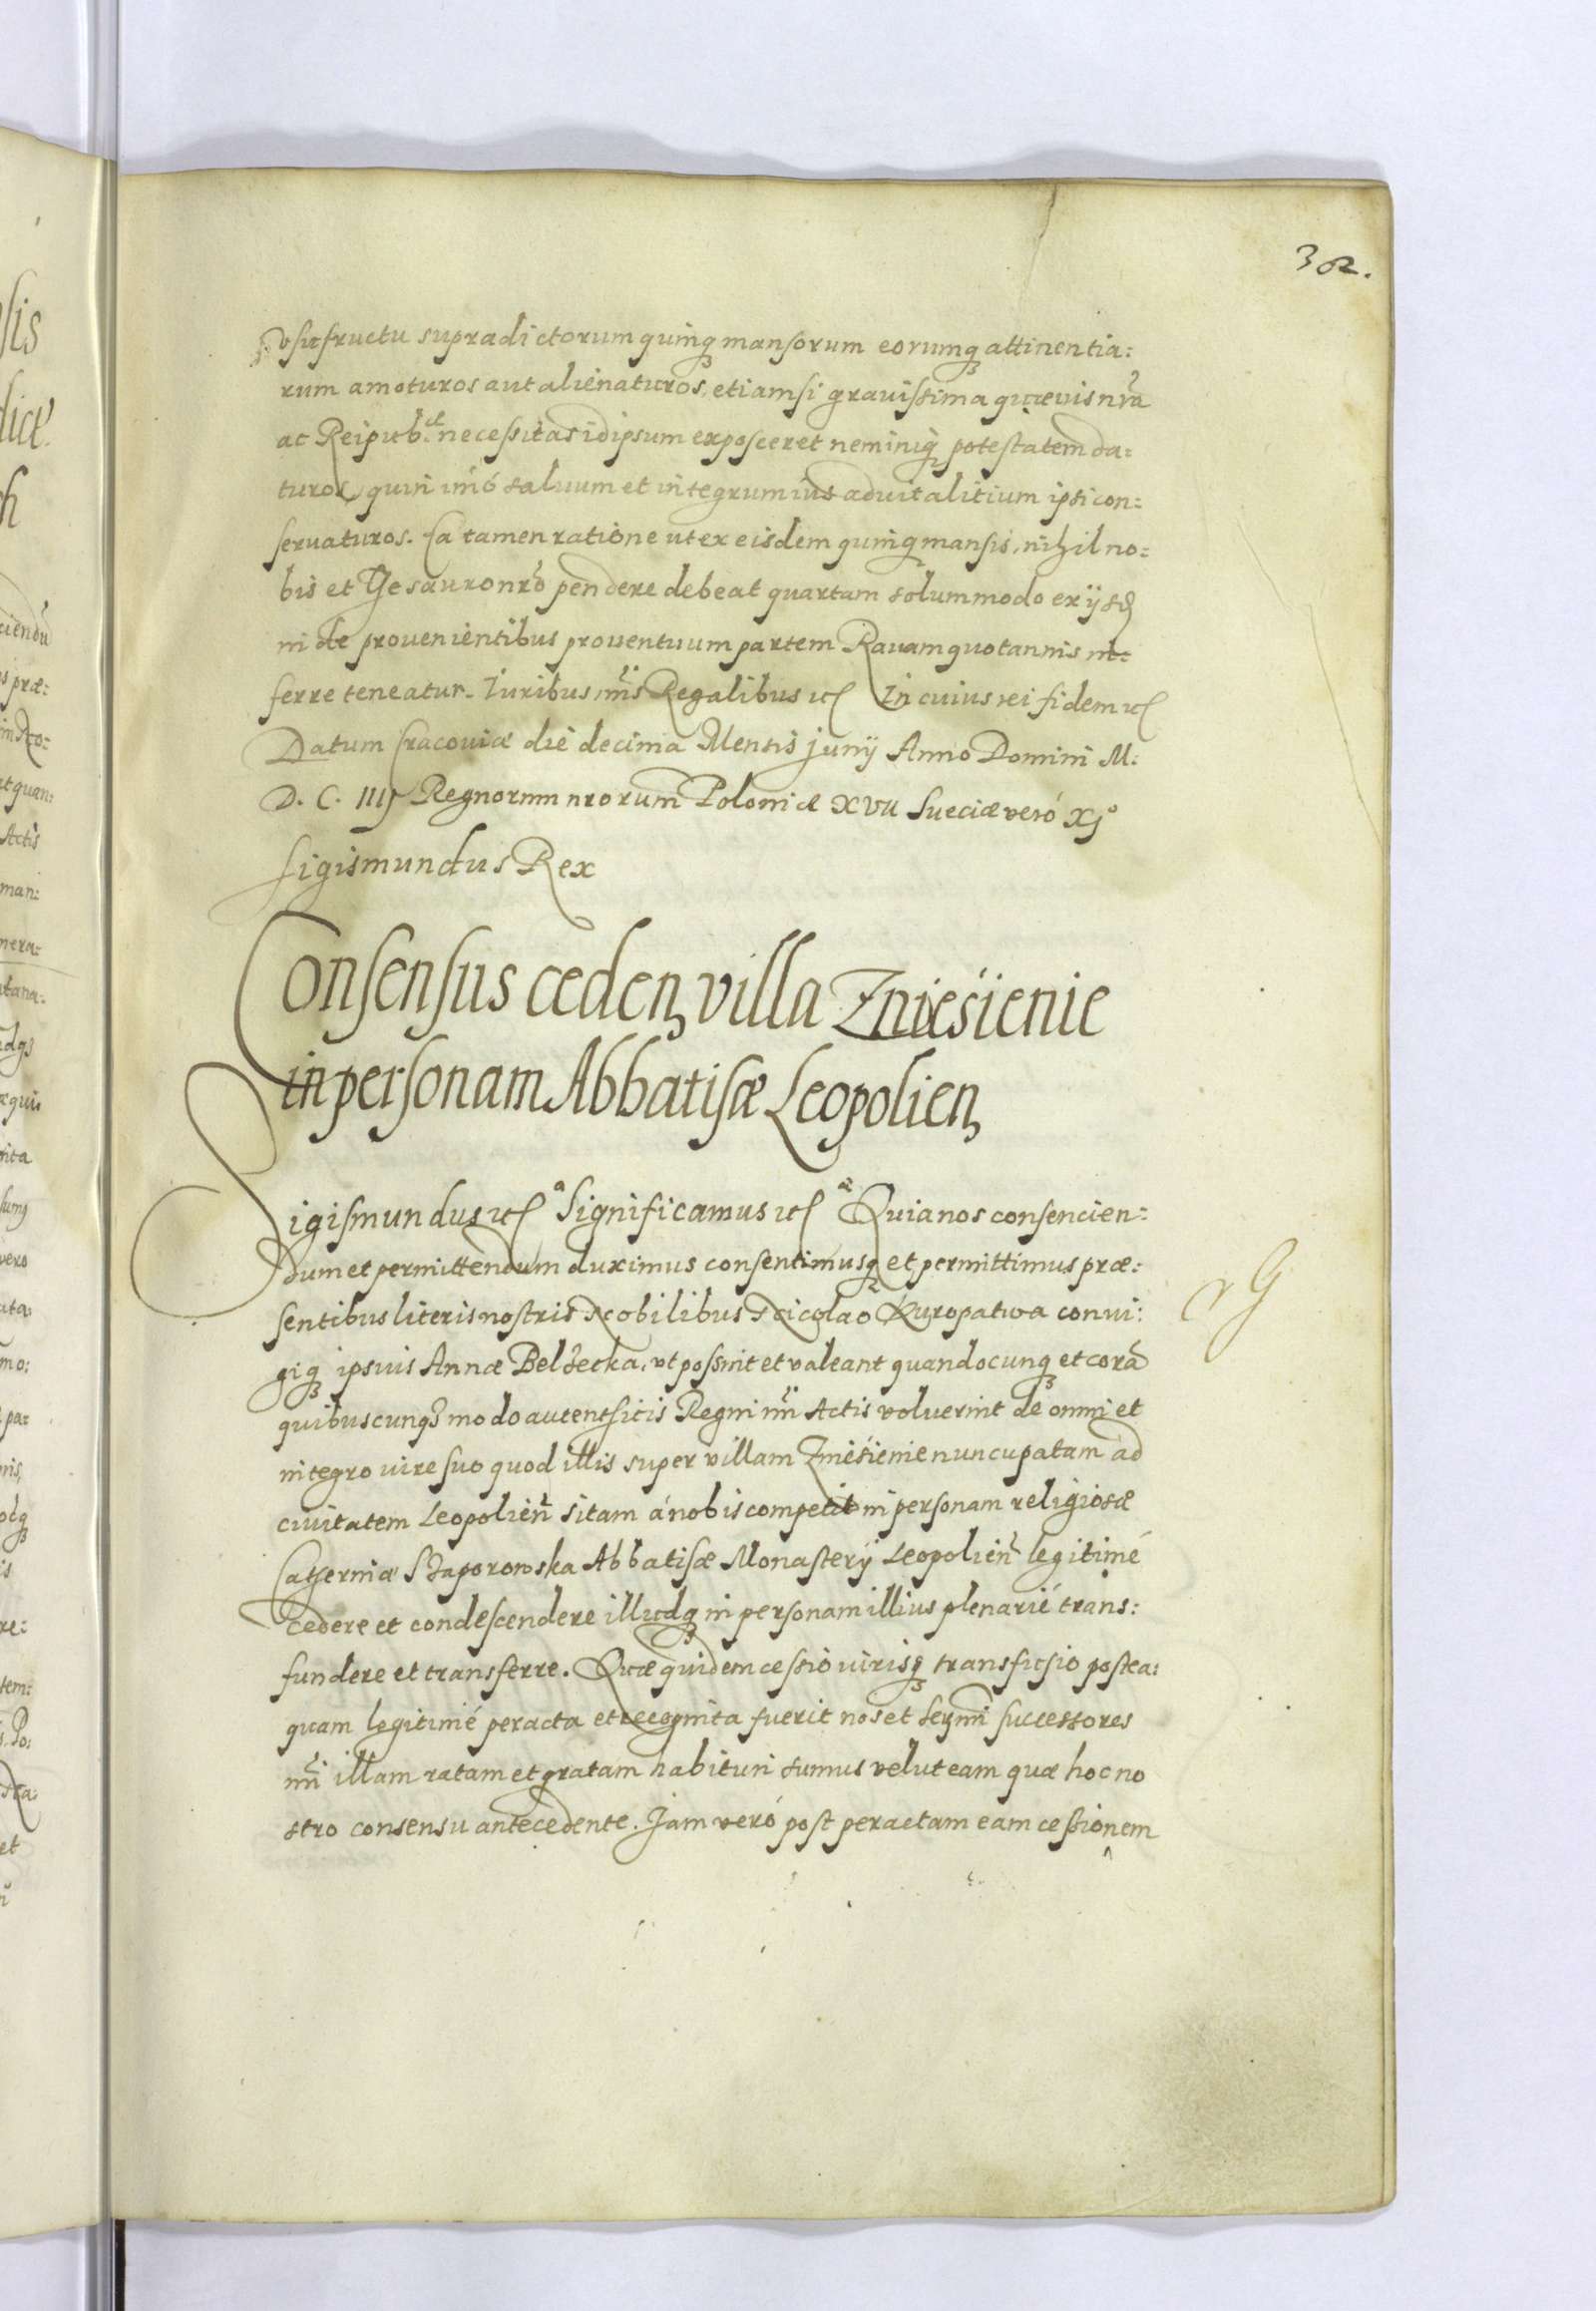 302.
vsufructu supradictorum quinq₃ mansorum eorumq₃ attinentia:
rum amoturos aut alienaturos, etiamsi grauissima quævis nrã
ac Reipub.ᶜᵉ necessitas idipsum exposceret neminiq₃ potestatem da:
turos quin imó saluum et integrum ius aduitalitium ipsi con:
seruaturos. Ea tamen ratione ut ex eisdem quinq₃ mansis, nihil no:
bis et Thesauro nrõ pendere debeat quartam solummodo ex ijsd
in de prouenientibus prouentuum partem Rauam quotannis in:
ferre teneatur. Iuribus nris̃ Regalibus etc In cuius rei fidem etc
Datum Cracoviæ die decima Mensis Junij Anno Domini M:
D. C. IIIJ Regnorum nrorum Poloniæ XVII Sueciæ veró XJ°
Sigismundus Rex
Consensus ceden villa Zniesienie
in personam Abbatisæ Leopolien
Sigismundus etc Significamus etc Quia nos consencien:
dum et permittendum duximus consentimusq₃ et permittimus præ:
sentibus literis nostris Nobilibus Nicolao Kuropatwa conui:
giq₃ ipsius Annæ Belzecka, vt possint et valeant quandocunq₃ et corã
quibuscunq₃ modo autenthicis Regni nri̇̃ Actis voluerint de omni et
integro iure suo quod illis super villam Zniesienie nuncupatam ad
ciuitatem Leopolien̄ sitam á nobis competit in personam religiosæ
Catherinæ Szaporowska Abbatisæ Monasterij Leopolien̄ legitimé
cedere et condescendere illudq₃ in personam illius plenarié trans:
fundere et transferre. Quæ quidem cessio iurisq₃ transfusio postea:
quam legitimé peracta et recognita fuerit nos et Sermi̇̃ successores
nri̇̃ illam ratam et gratam habituri sumus velut eam quæ hoc no
stro consensu antecedente. Jam veró post peractam eam cessionem